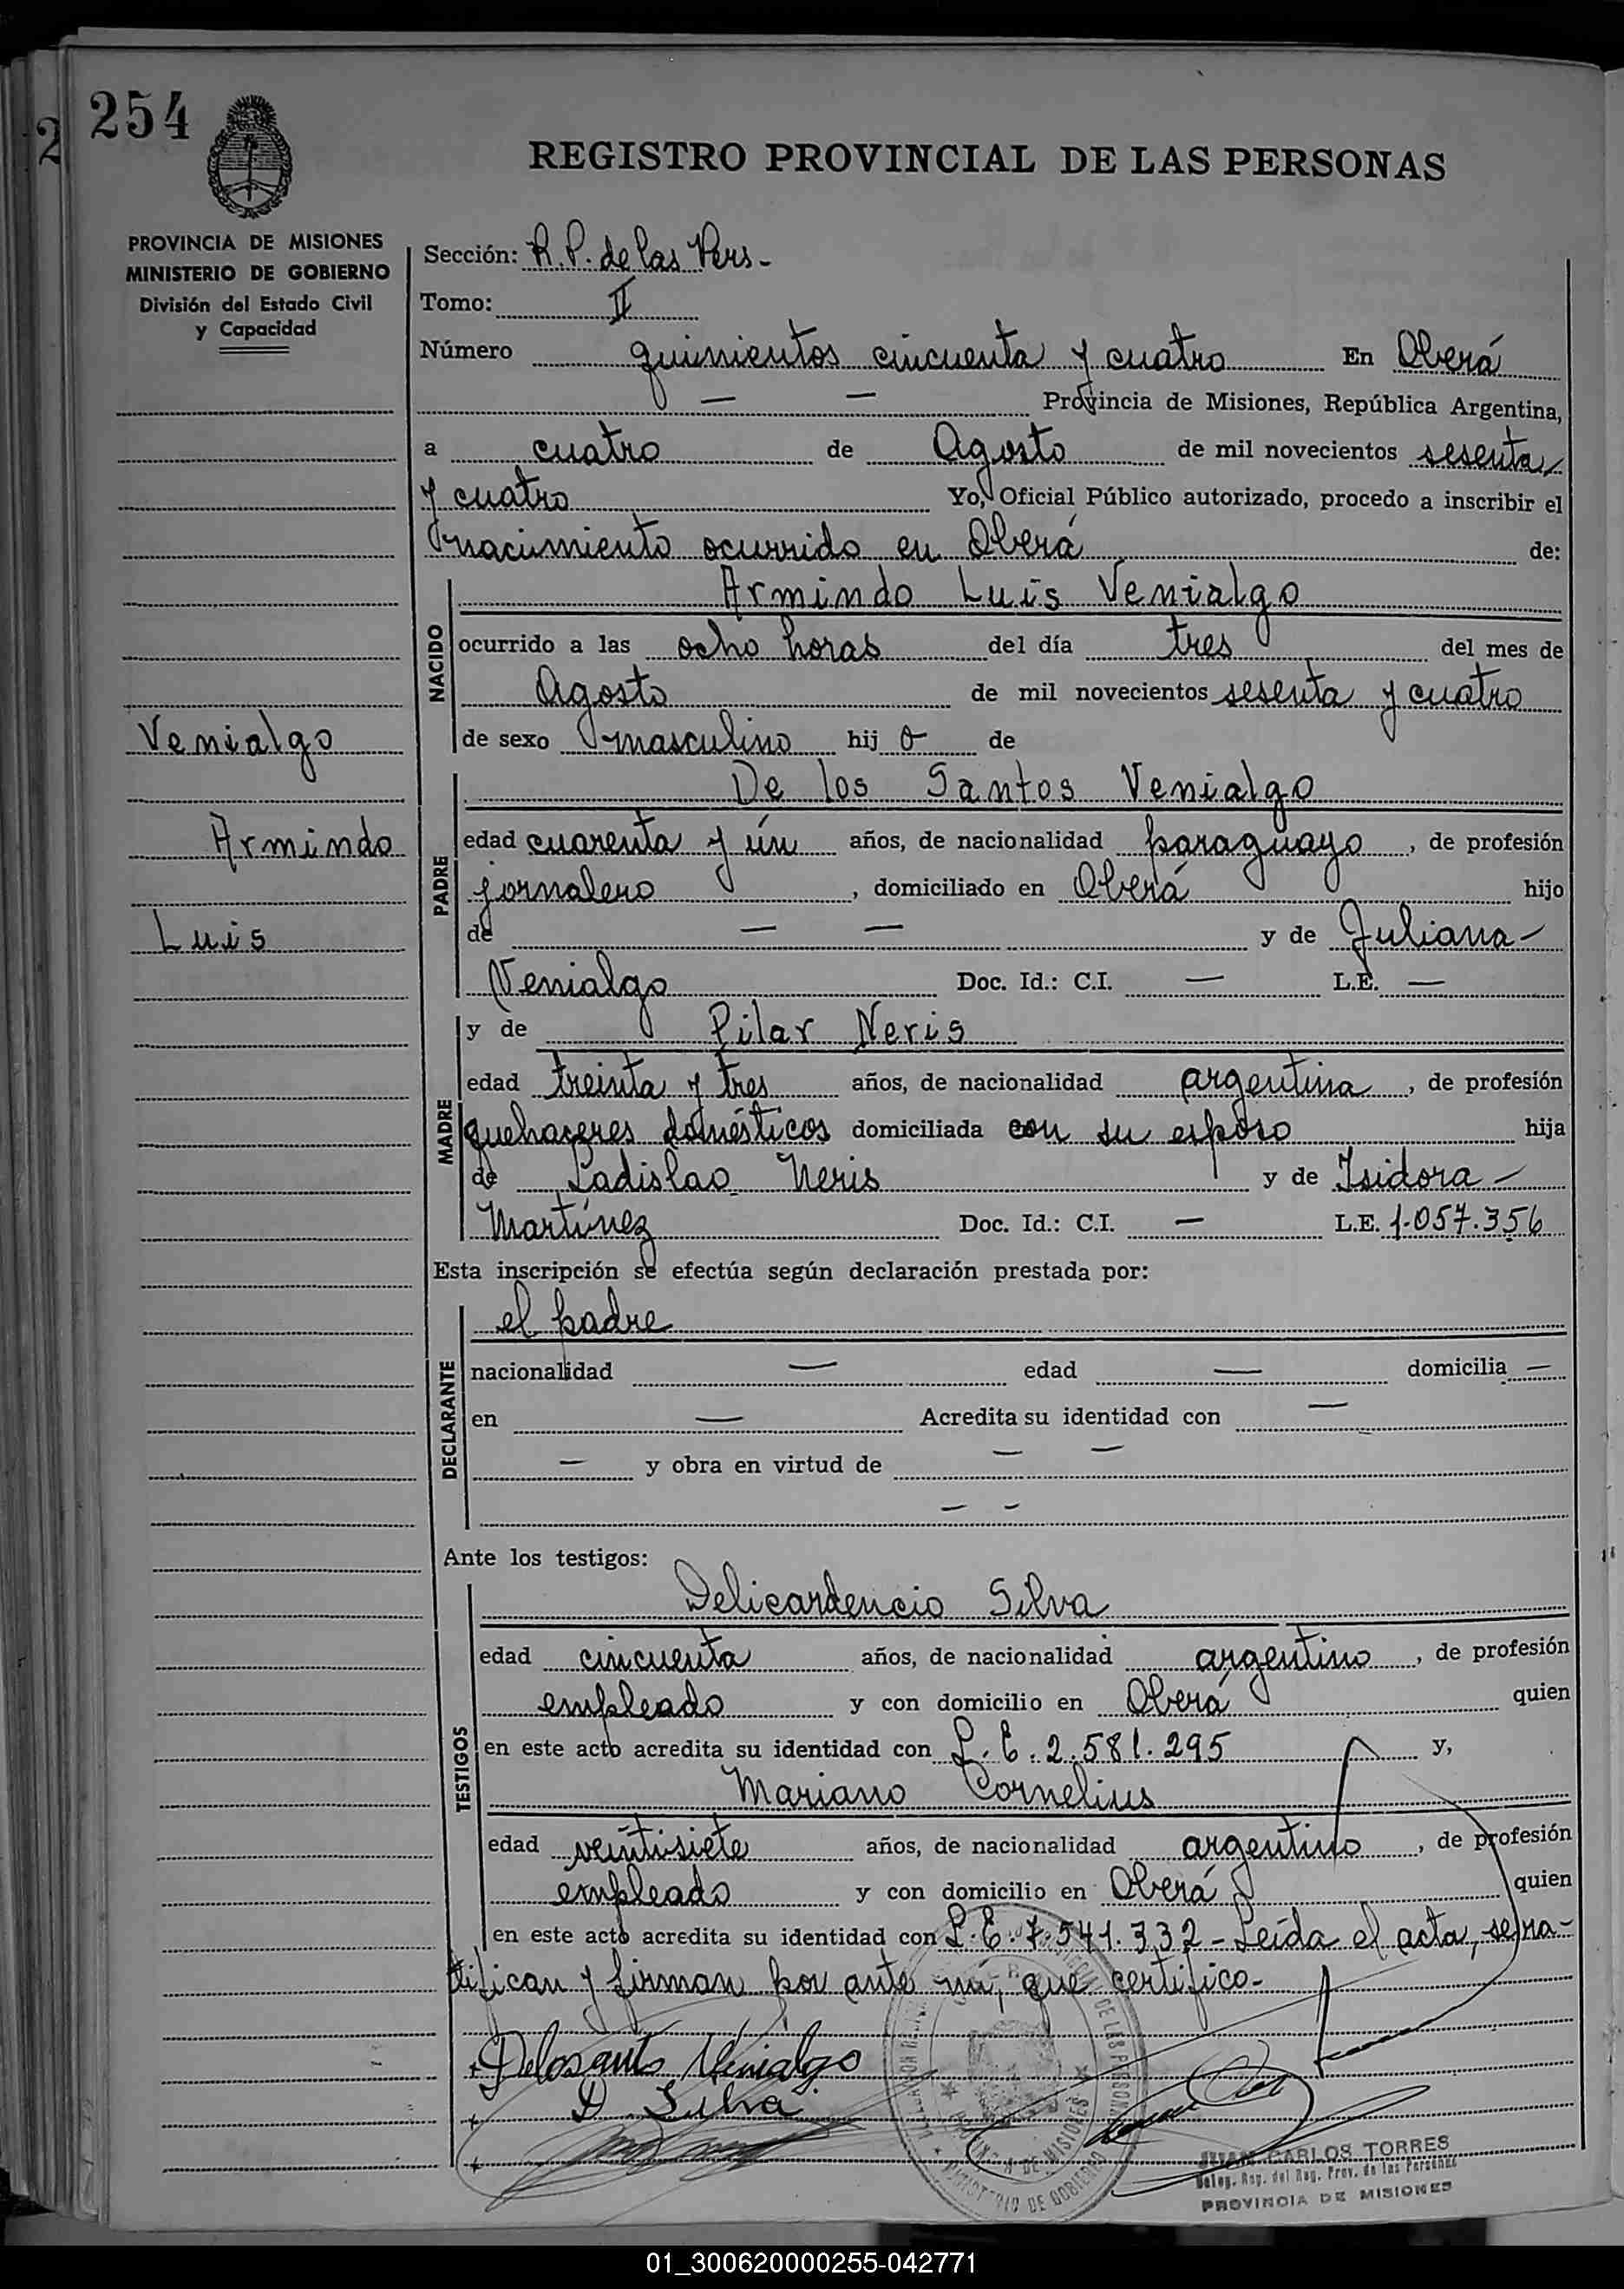 254
REGISTRO PROVINCIAL DE LAS PERSONAS
PROVINCIA DE MISIONES
MINISTERIO DE GOBIERNO
División del Estado Civil
y Capacidad
Venialgo
Armindo
Luis
Sección: R. P. de las Pers-
Tomo: II
Número quinientos cincuenta y cuatro En Oberá
— — Provincia de Misiones, República Argentina,
a cuatro de Agosto de mil novecientos sesenta
y cuatro Yo, Oficial Público autorizado, procedo a inscribir el
nacimiento ocurrido en Oberá de:
NACIDO
Armindo Luis Venialgo
ocurrido a las ocho horas del día tres del mes de
Agosto de mil novecientos sesenta y cuatro
de sexo masculino hij o de
PADRE
De los Santos Venialgo
edad cuarenta y ún años, de nacionalidad paraguayo, de profesión
jornalero, domiciliado en Oberá hijo
de — — y de Juliana —
Venialgo Doc. Id.: C.I. — L.E. —
MADRE
y de Pilar Neris
edad treinta y tres años, de nacionalidad argentina, de profesión
quehaceres domésticos domiciliada con su esposo hija
de Ladislao Neris y de Isidora —
Martínez Doc. Id.: C.I. — L.E. 1.057.356
Esta inscripción se efectúa según declaración prestada por:
DECLARANTE
el padre
nacionalidad — edad — domicilia —
en — Acredita su identidad con —
— y obra en virtud de — —
— —
Ante los testigos:
TESTIGOS
Delicardencio Silva
edad cincuenta años, de nacionalidad argentino, de profesión
empleado y con domicilio en Oberá quien
en este acto acredita su identidad con L.E. 2.581.295 y,
Mariano Cornelius
edad veintisiete años, de nacionalidad argentino, de profesión
empleado y con domicilio en Oberá quien
en este acto acredita su identidad con L.E. 7.541.332 - Leída el acta, se ra-
tifican y firman por ante mí, que certifico.-
Delosanto Venialgo
D. Silva
JUAN CARLOS TORRES
Deleg. Reg. del Reg. Prov. de las Personas
PROVINCIA DE MISIONES
01_300620000255-042771